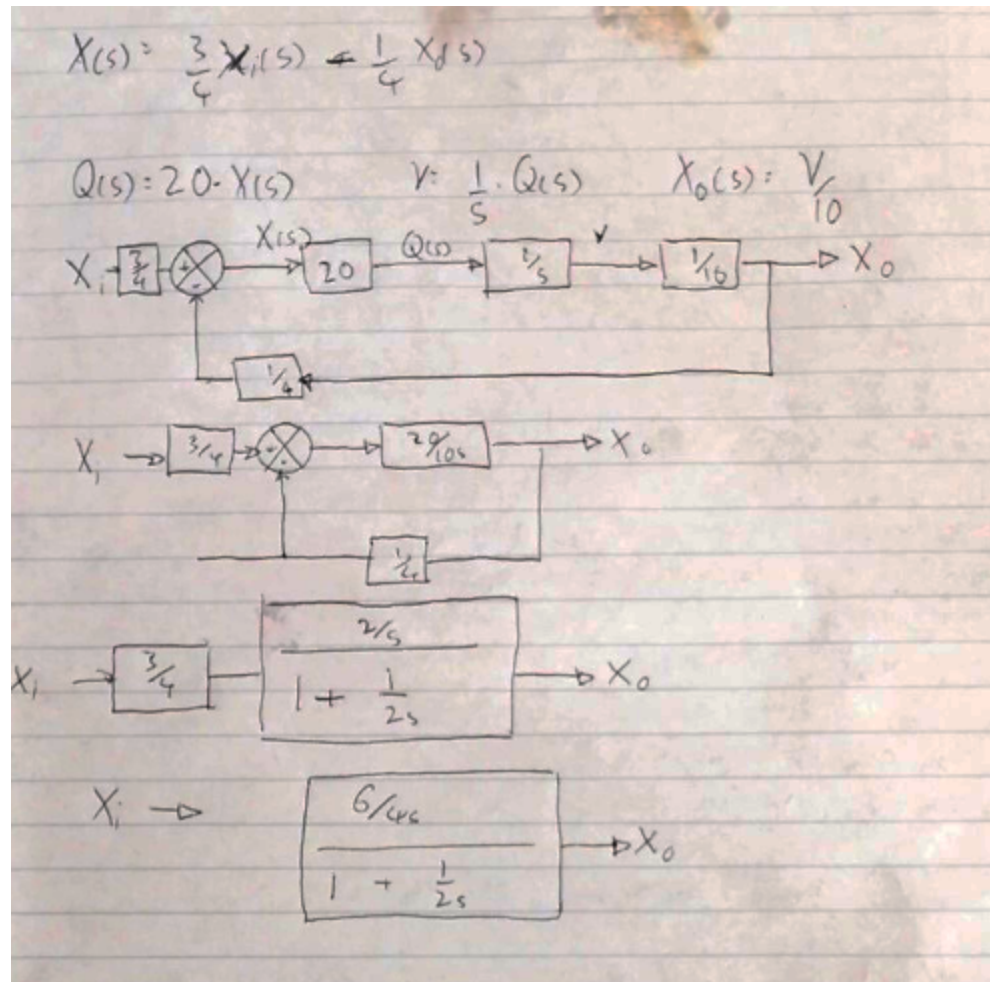 X(s) = 3/4 Xi(s) - 1/4 Xo(s)
Q(s) = 20 · X(s) V = 1/s · Q(s) Xo(s) = V/10
Xi 3/4 + - X(s) 20 Q(s) 1/s V 1/10 Xo
1/4
Xi 3/4 + - 20/10s Xo
1/4
Xi 3/4 2/s Xo
1 + 1/2s
Xi 6/4s Xo
1 + 1/2s